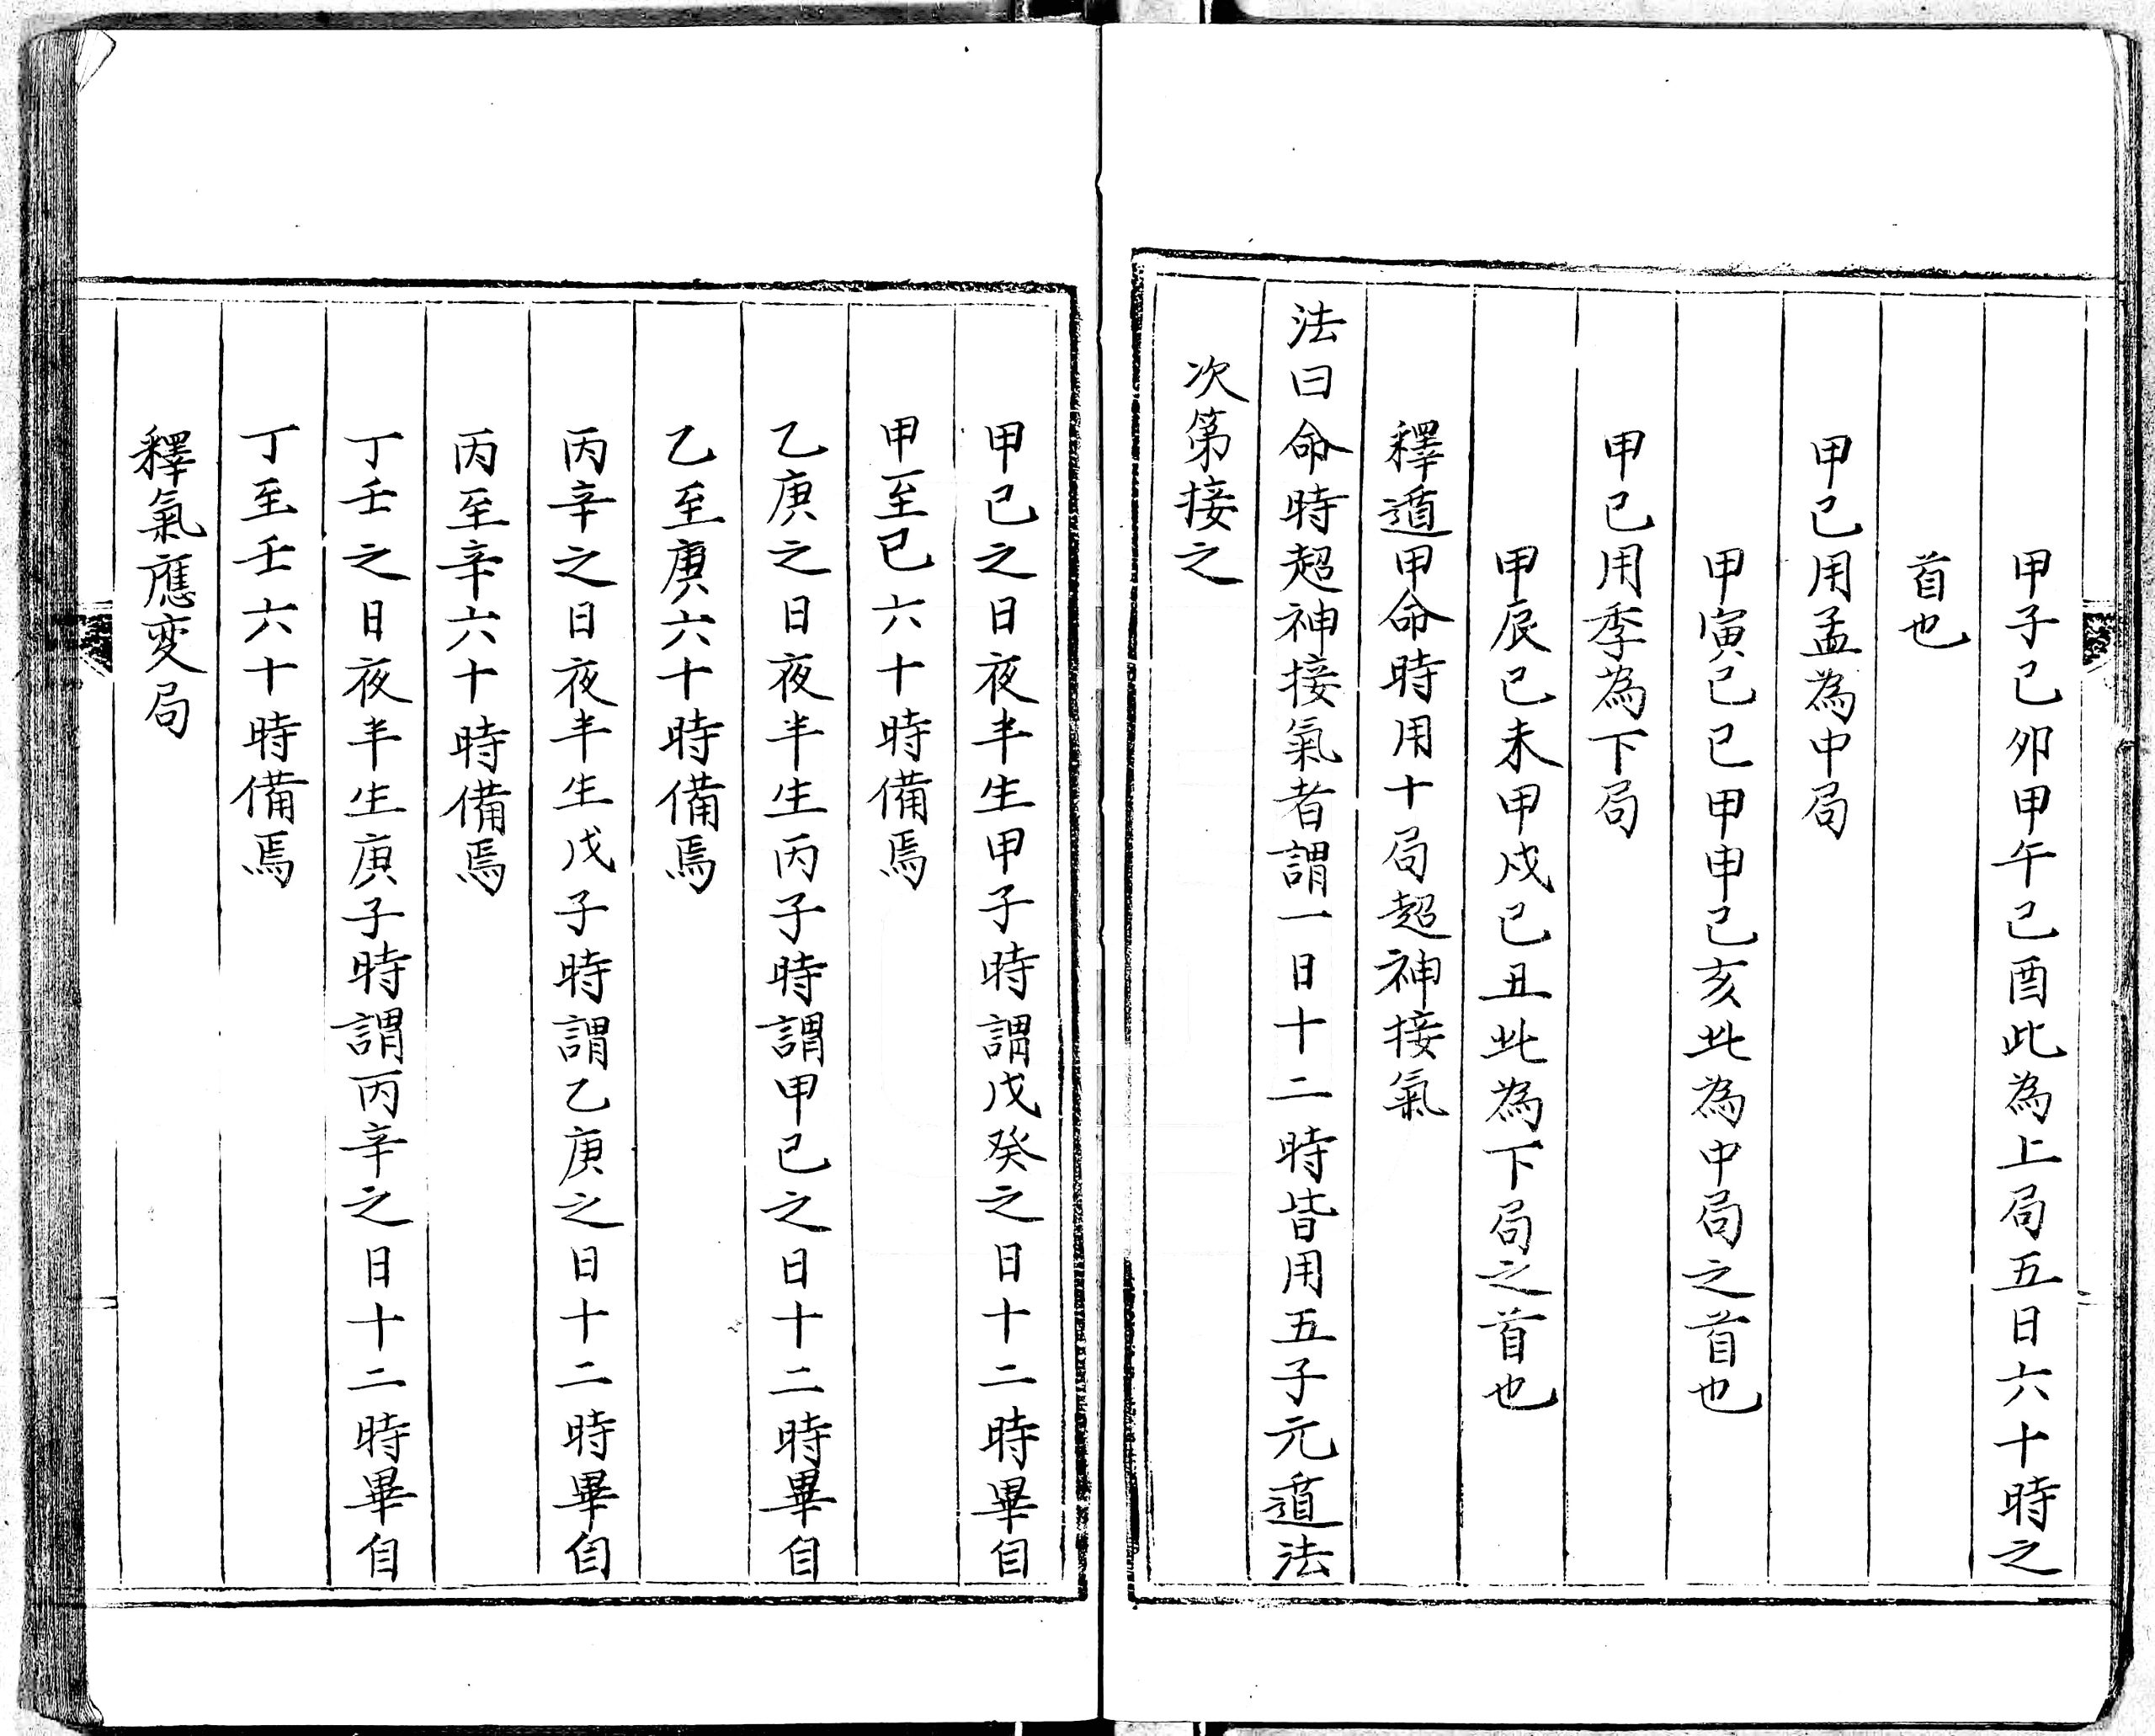 甲子己卯甲午己酉此為上局五日六十時之
首也
甲己用孟為中局
甲寅己巳甲申己亥此為中局之首也
甲己用季為下局
甲辰己未甲戌己丑此為下局之首也
釋遁甲命時用十局超神接氣
法曰命時超神接氣者謂一日十二時皆用五子元遁法
次第接之
甲己之日夜半生甲子時謂戊癸之日十二時畢自
甲至己六十時備焉
乙庚之日夜半生丙子時謂甲己之日十二時畢自
乙至庚六十時備焉
丙辛之日夜半生戊子時謂乙庚之日十二時畢自
丙至辛六十時備焉
丁壬之日夜半生庚子時謂丙辛之日十二時畢自
丁至壬六十時備焉
釋氣應変局